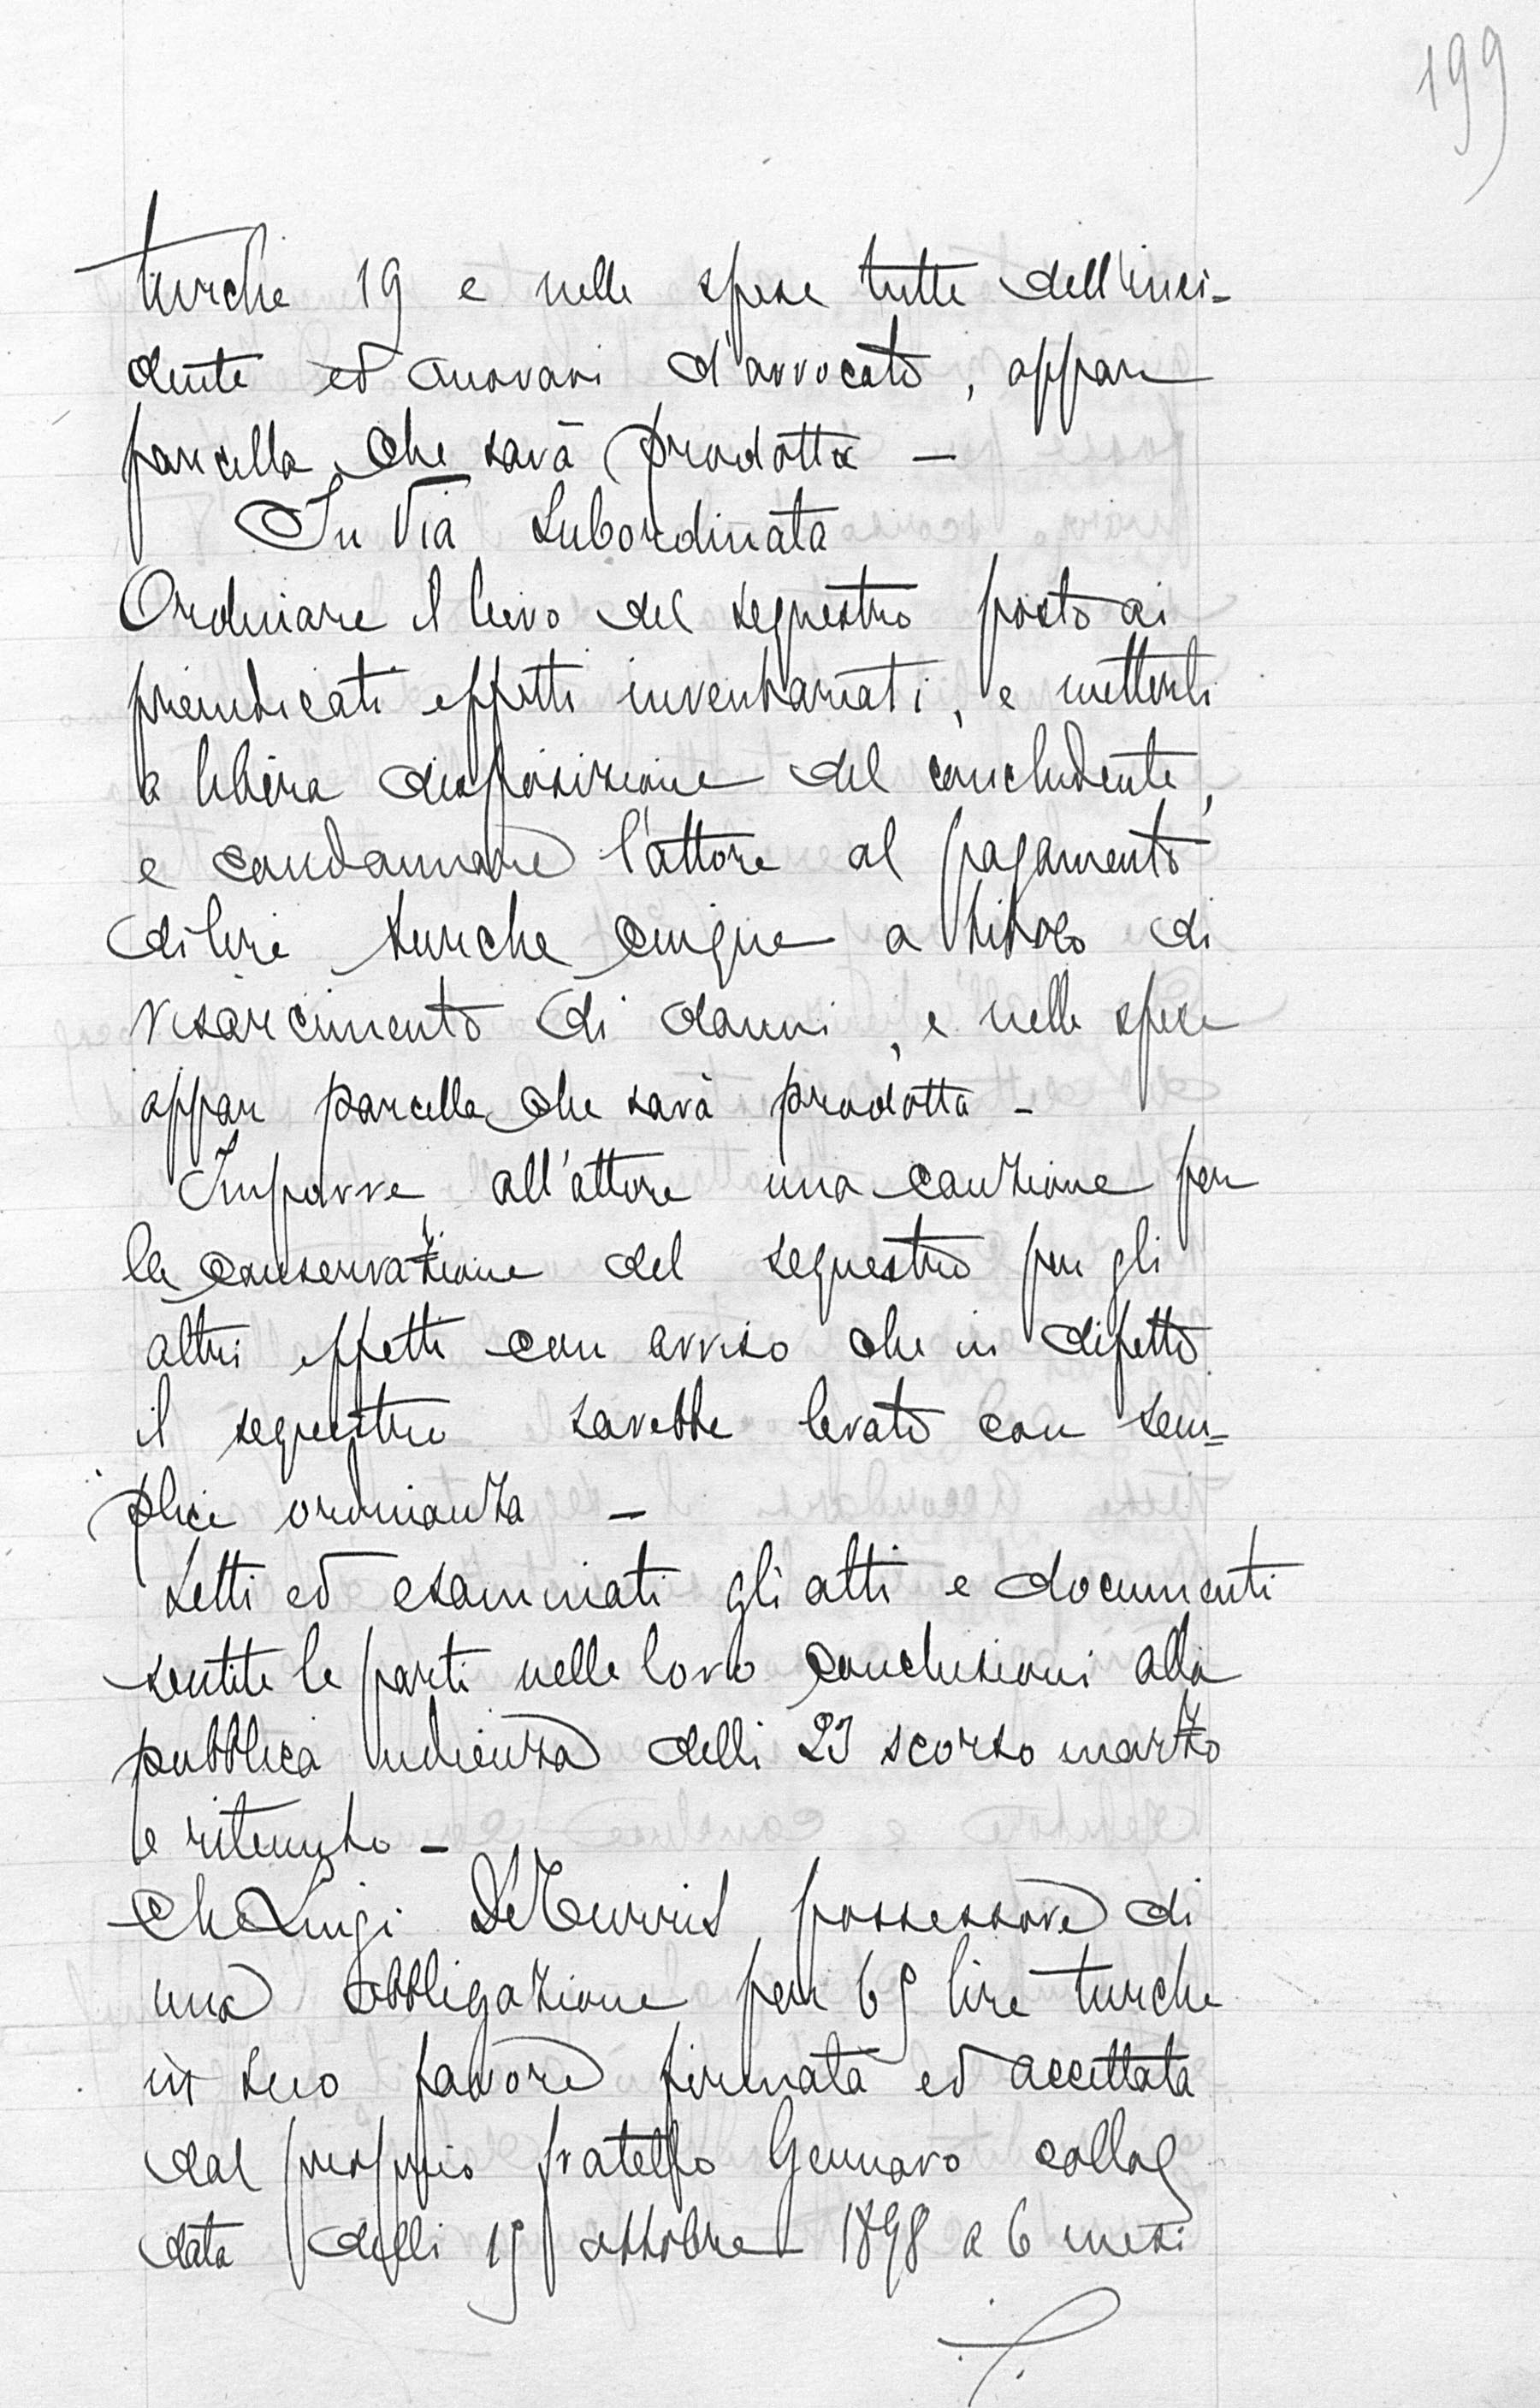 199
turche 19 e nelle spese tutte dell'inci=
dente ed onorari d'avvocato, appare
parcella che sarà prodotta —
In Via Subordinata
Ordinare il levo del sequestro posto ai
preindicati effetti inventariati, e metterli
a libera disposizione del concludente,
e condannare l'attore al pagamento
di lire turche cinque a titolo di
risarcimento di danni, e nelle spese
appar parcella che sarà prodotta -
Imporre all'attore una cauzione per
la conservazione del sequestro per gli
altri effetti con avviso che in difetto
il sequestro sarebbe levato con sem=
plice ordinanza —
Letti ed esaminati gli atti e documenti
sentite le parti nelle loro conclusioni alla
pubblica udienza delli 23 scorso marzo
e ritenuto -
Che Luigi possessore di
una obbligazione per lire turche
in suo favore firmata ed accettata
dal proprio fratello Gennaro colla
data delli ottobre 1898 a 6 mesi